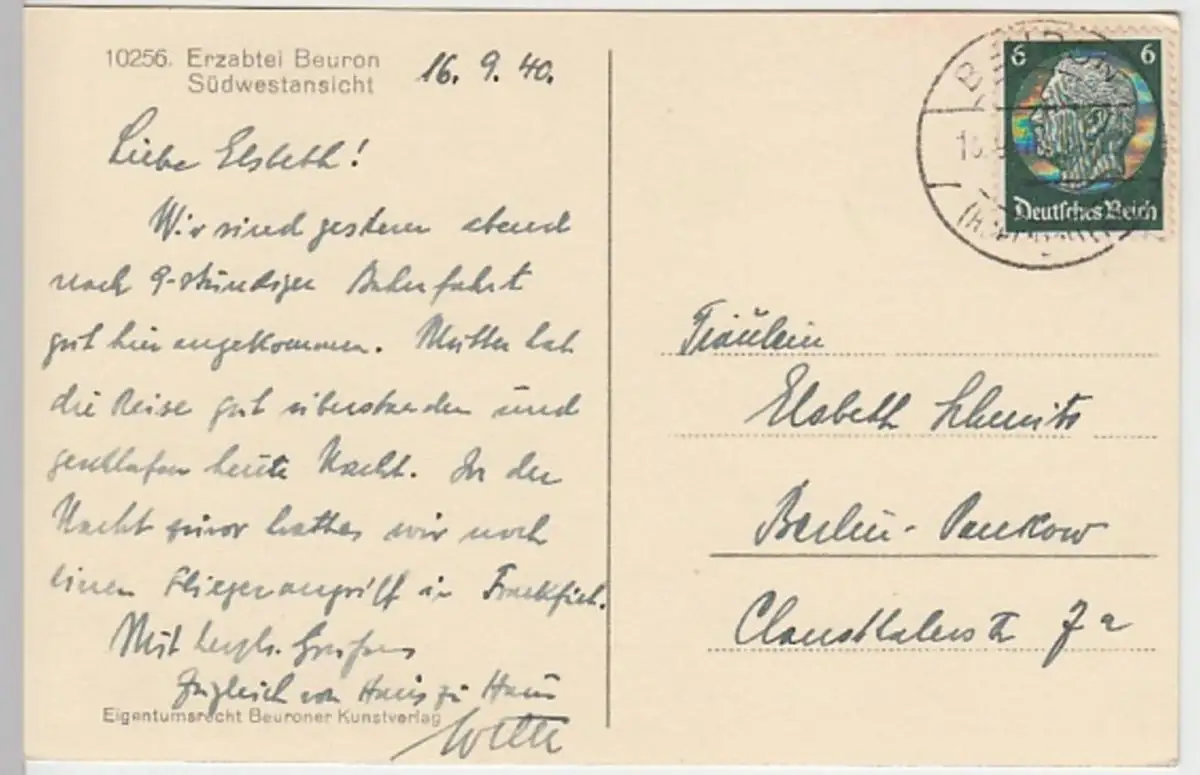 10256. Erzabtei Beuron
Südwestansicht
16. 9. 40.
Liebe Elsbeth!
Wir sind gestern abend
nach 9-stündiger Bahnfahrt
gut hier angekommen. Mutter hat
die Reise gut überstanden und
geschlafen heute Nacht. In der
Nacht zuvor hatten wir noch
einen Fliegerangriff in
Mit herzl. Grüßen
zugleich von Haus zu Haus
Eigentumsrecht Beuroner Kunstverlag
BEURON
6 6
Deutsches Reich
Fräulein
Elsbeth Schmitz
Berlin-Pankow
Clausthalerstr 7a